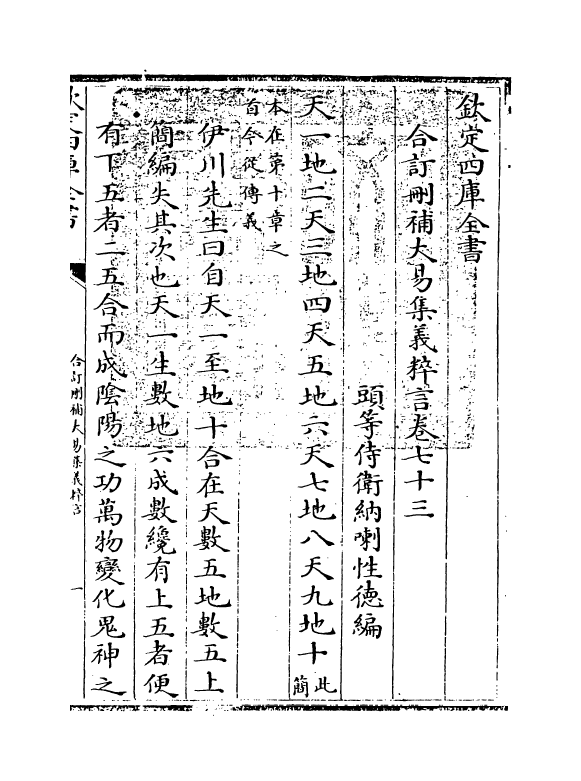 欽定四庫全書
合訂刪補大易集義粹言卷七十三
頭等侍衛納喇性德編
天一地二天三地四天五地六天七地八天九地十此
簡
本在第十章之
首今從傳義
伊川先生曰自天一至地十合在天數五地數五上
簡編失其次也天一生數地六成數纔有上五者便
有下五者二五合而成陰陽之功萬物變化鬼神之
欽定四庫全書
合訂刪補大易集義粹言
一